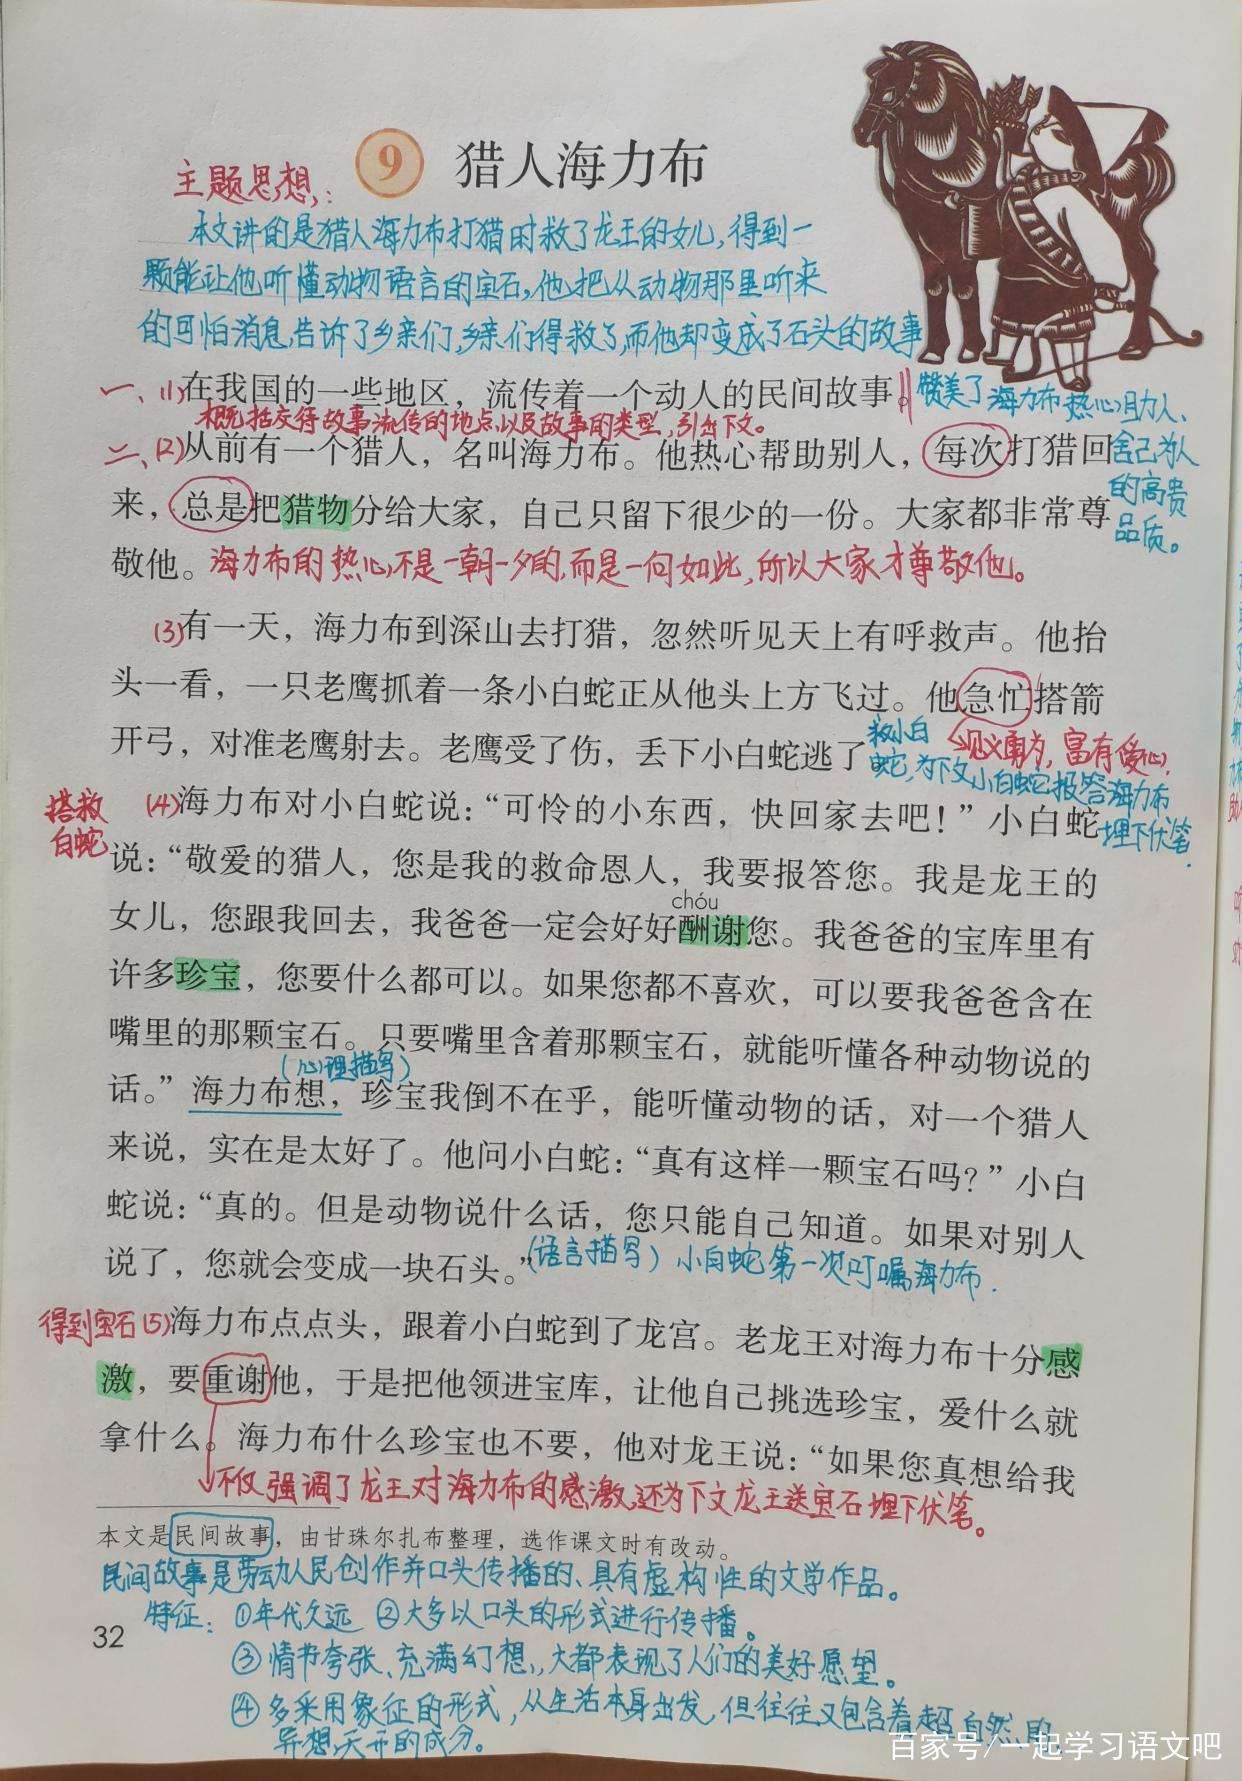 9 猎人海力布
主题思想:
本文讲的是猎人海力布打猎时救了龙王的女儿,得到一
颗能让他听懂动物语言的宝石,他把从动物那里听来
的可怕消息告诉了乡亲们,乡亲们得救了,而他却变成了石头的故事
一、(1)在我国的一些地区，流传着一个动人的民间故事。
赞美了海力布热心助人、
舍己为人
的高贵
品质。
概括交待故事流传的地点以及故事的类型,引出下文。
二、(2)从前有一个猎人，名叫海力布。他热心帮助别人，每次打猎回
来，总是把猎物分给大家，自己只留下很少的一份。大家都非常尊
敬他。海力布的热心不是一朝一夕的,而是一向如此,所以大家才尊敬他。
(3)有一天，海力布到深山去打猎，忽然听见天上有呼救声。他抬
头一看，一只老鹰抓着一条小白蛇正从他头上方飞过。他急忙搭箭
开弓，对准老鹰射去。老鹰受了伤，丢下小白蛇逃了
见义勇为,富有爱心。
救小白
蛇,为下文小白蛇报答海力布
埋下伏笔.
搭救
白蛇
(4)海力布对小白蛇说：“可怜的小东西，快回家去吧！”小白蛇
说：“敬爱的猎人，您是我的救命恩人，我要报答您。我是龙王的
chóu
女儿，您跟我回去，我爸爸一定会好好酬谢您。我爸爸的宝库里有
许多珍宝，您要什么都可以。如果您都不喜欢，可以要我爸爸含在
嘴里的那颗宝石。只要嘴里含着那颗宝石，就能听懂各种动物说的
(心理描写)
话。”海力布想，珍宝我倒不在乎，能听懂动物的话，对一个猎人
来说，实在是太好了。他问小白蛇：“真有这样一颗宝石吗？”小白
蛇说：“真的。但是动物说什么话，您只能自己知道。如果对别人
说了，您就会变成一块石头。”
(语言描写)小白蛇第一次叮嘱海力布.
得到宝石(5)海力布点点头，跟着小白蛇到了龙宫。老龙王对海力布十分感
激，要重谢他，于是把他领进宝库，让他自己挑选珍宝，爱什么就
拿什么。海力布什么珍宝也不要，他对龙王说：“如果您真想给我
不仅强调了龙王对海力布的感激,还为下文龙王送宝石埋下伏笔。
本文是民间故事，由甘珠尔扎布整理，选作课文时有改动。
民间故事是劳动人民创作并口头传播的、具有虚构性的文学作品。
特征：①年代久远 ②大多以口头的形式进行传播。
32
③情节夸张、充满幻想,大都表现了人们的美好愿望。
④多采用象征的形式,从生活本身出发,但往往又包含着超自然、
异想天开的成分。
百家号/一起学习语文吧